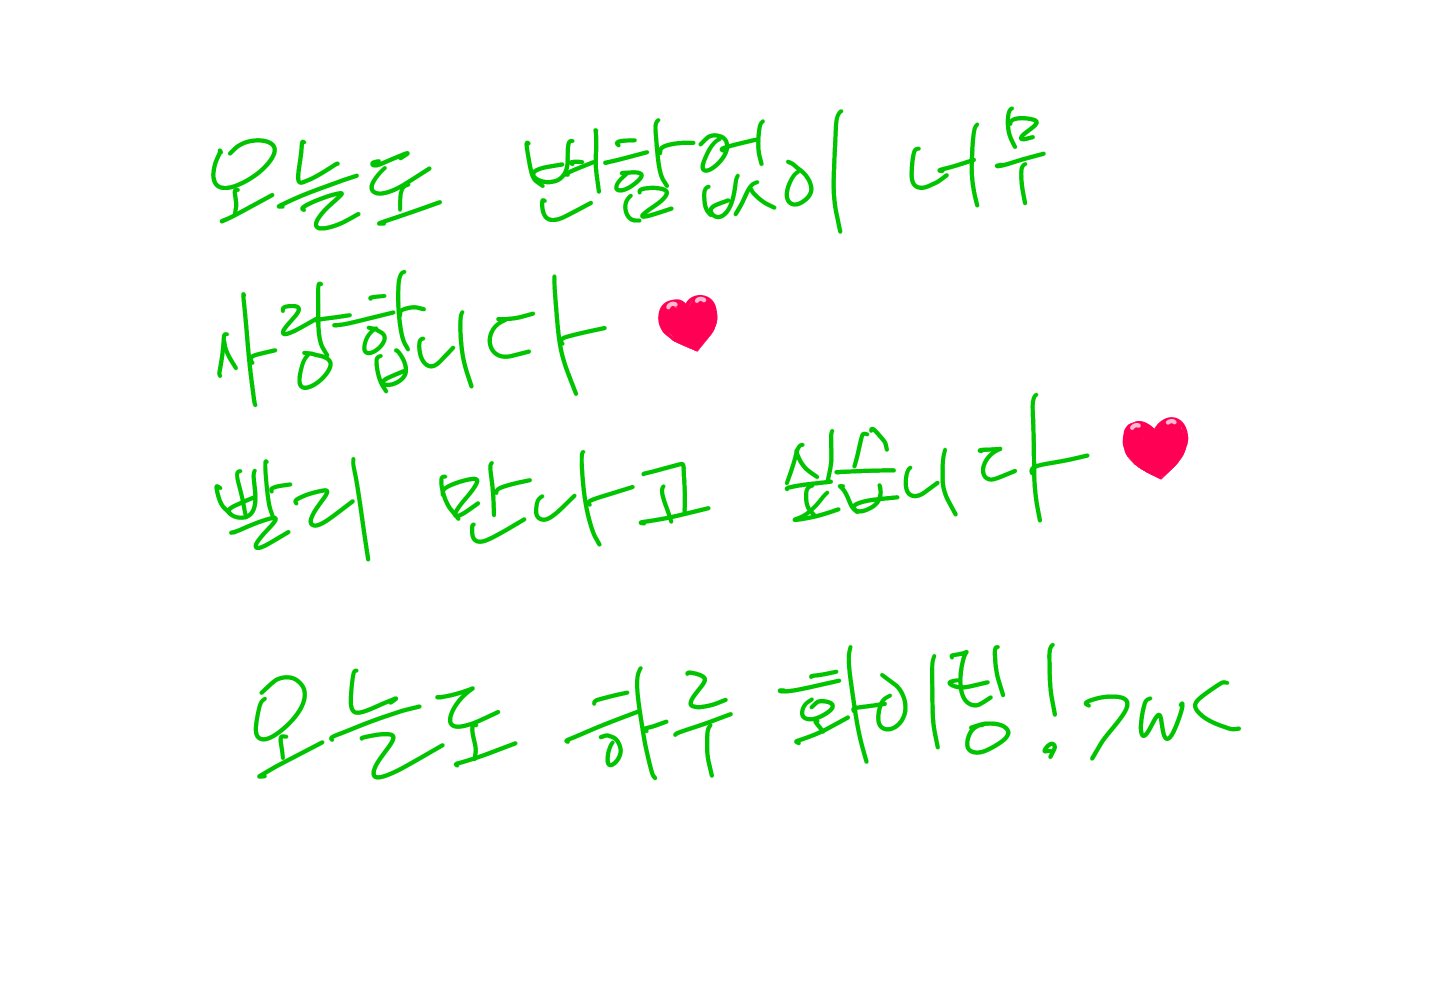 오늘도 변함없이 너무
사랑합니다 ❤
빨리 만나고 싶습니다 ❤
오늘도 하루 화이팅! >w<